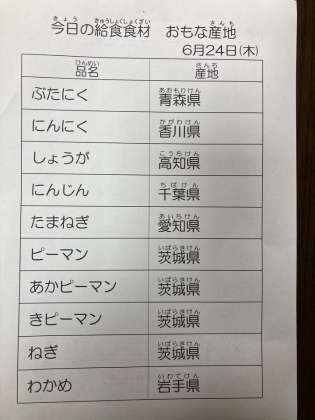 今日の給食食材　おもな産地
6月24日(木)
品名 産地
ぶたにく 青森県
にんにく 香川県
しょうが 高知県
にんじん 千葉県
たまねぎ 愛知県
ピーマン 茨城県
あかピーマン 茨城県
きピーマン 茨城県
ねぎ 茨城県
わかめ 岩手県